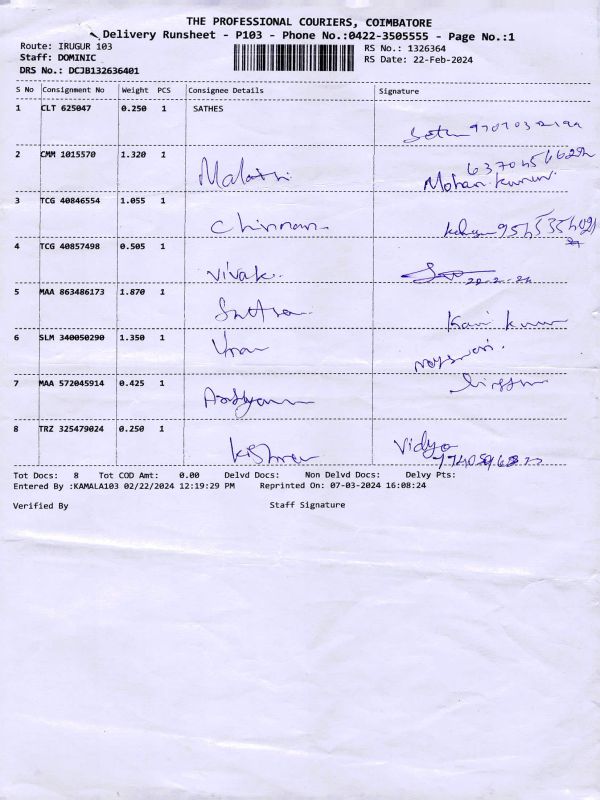 THE PROFESSIONAL COURIERS, COIMBATORE
Delivery Runsheet - P103 - Phone No.:0422-3505555 - Page No.:1
Route: IRUGUR 103 RS No.: 1326364
Staff: DOMINIC RS Date: 22-Feb-2024
DRS No.: DCJB132636401
S No Consignment No Weight PCS Consignee Details Signature
1 CLT 625047 0.250 1 SATHES
2 CMM 1015570 1.320 1 Malathi Mohan kumar
3 TCG 40846554 1.055 1 Chinnan
4 TCG 40857498 0.505 1 Vivak
5 MAA 863486173 1.870 1 Kavi kumar
6 SLM 340050290 1.350 1
7 MAA 572045914 0.425 1
8 TRZ 325479024 0.250 1 Vidya
Tot Docs: 8 Tot COD Amt: 0.00 Delvd Docs: Non Delvd Docs: Delvy Pts:
Entered By :KAMALA103 02/22/2024 12:19:29 PM Reprinted On: 07-03-2024 16:08:24
Verified By Staff Signature